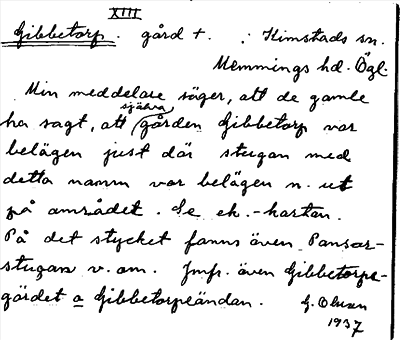 XIII
Gibbetorp. gård +. : Kimstads sn.
Memmings hd. Ögl.
Min meddelare säger, att de gamle
själva
ha sagt, att gården Gibbetorp var
belägen just där stugan med
detta namn var belägen n. ut
på området. Se ek.-kartan.
På det stycket fanns även Pansar-
stugan v. om. Jmfr. även Gibbetorps-
gärdet a Gibbetorpeändan. G. Olsson
1937